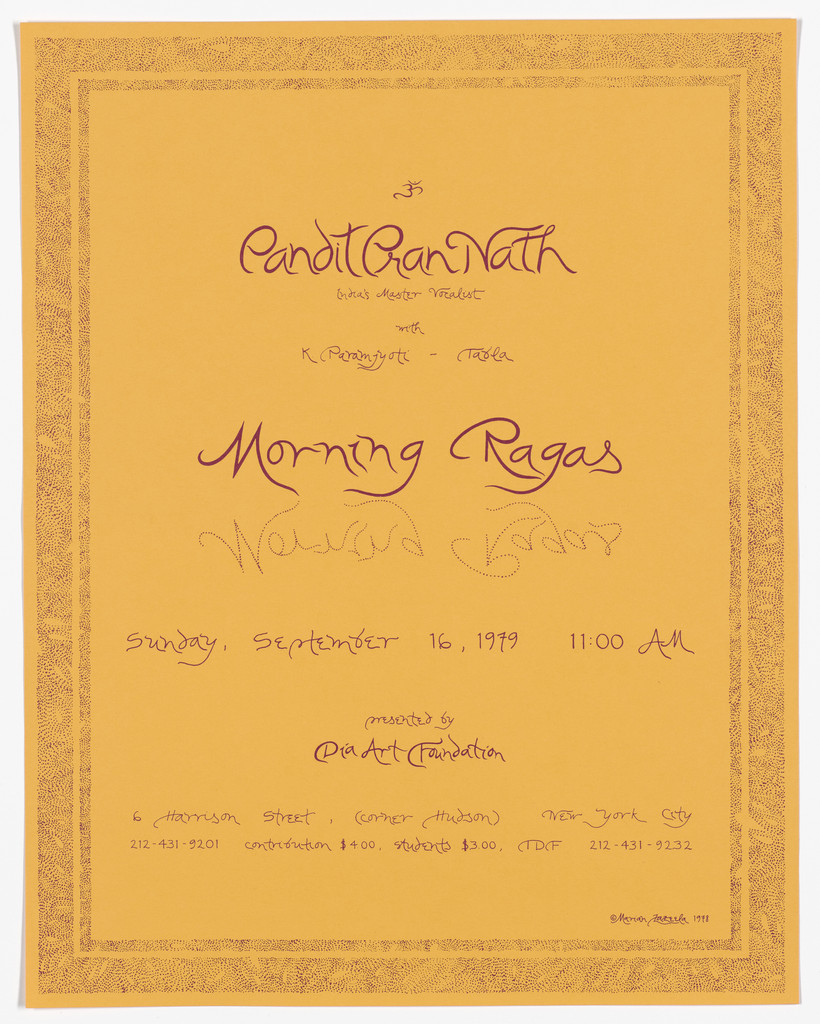 ॐ
Pandit Pran Nath
India's Master Vocalist
with
K Paramjyoti - Tabla
Morning Ragas
Sunday, September 16, 1979 11:00 AM
presented by
Dia Art Foundation
6 Harrison Street, (corner Hudson) New York City
212-431-9201 contribution $4.00, students $3.00, TDF 212-431-9232
©Marian Zazeela 1998